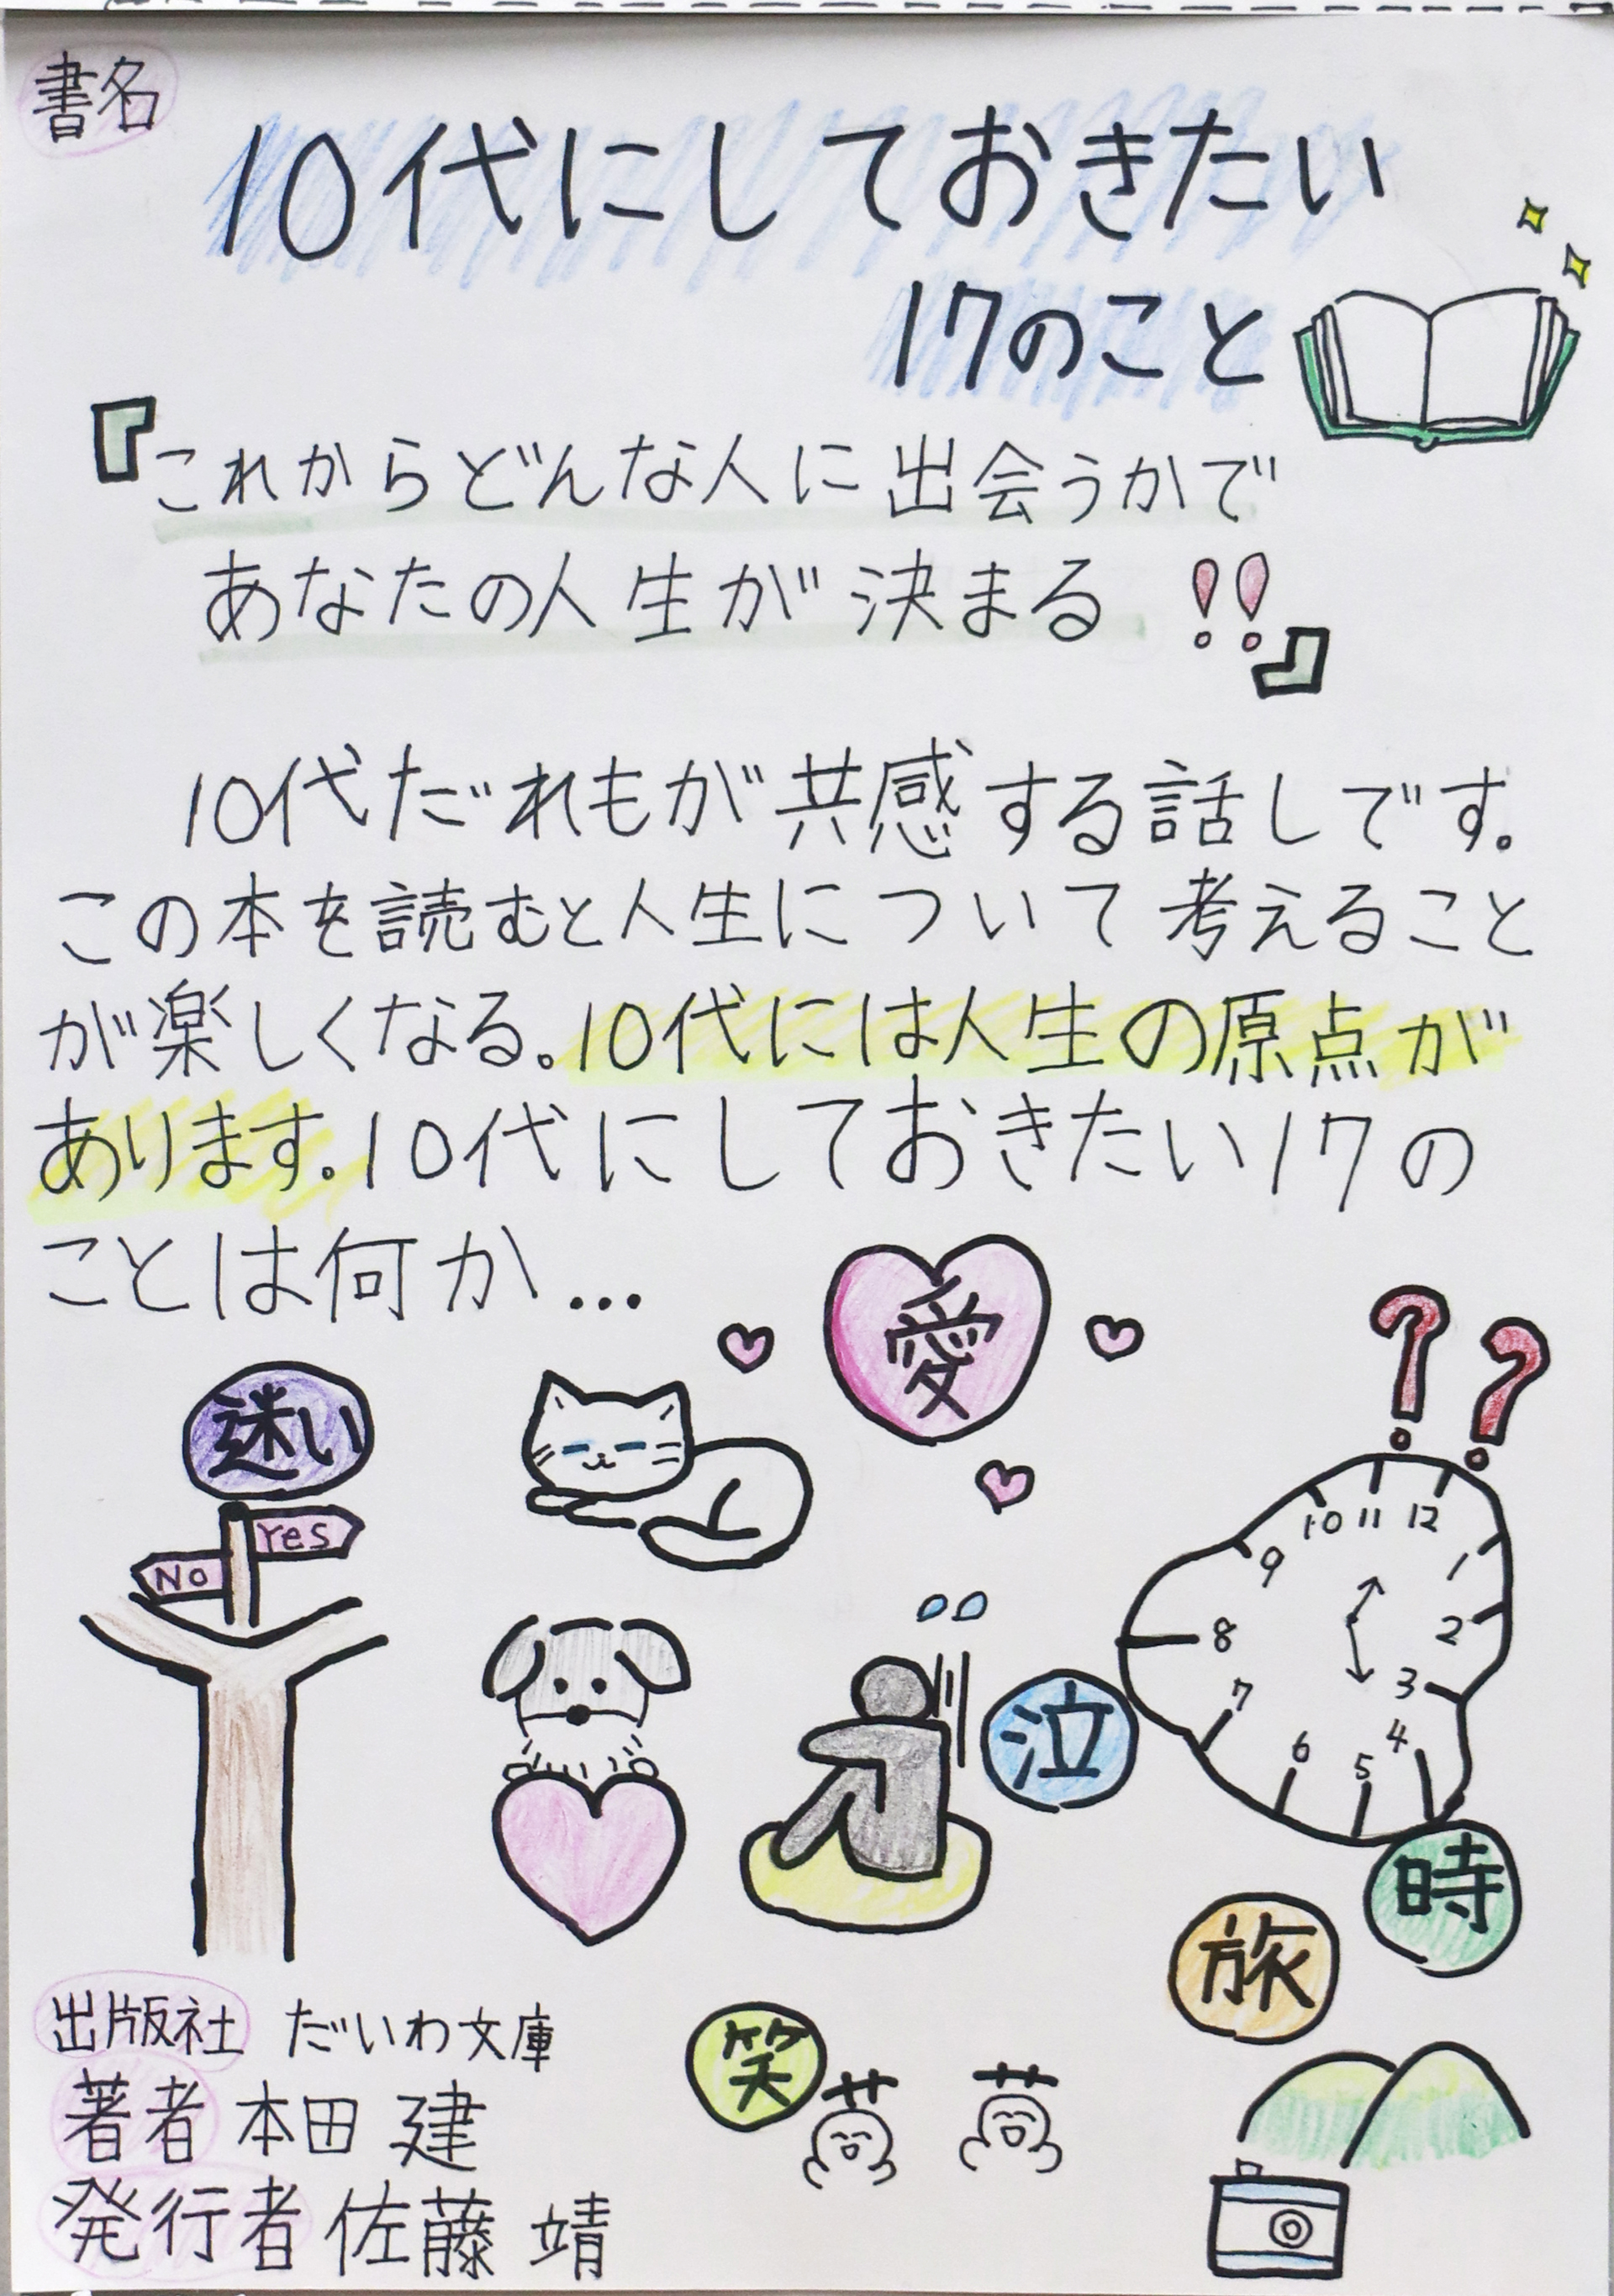 書名
10代にしておきたい
17のこと
『これからどんな人に出会うかで
あなたの人生が決まる!!』
10代だれもが共感する話しです。
この本を読むと人生について考えること
が楽しくなる。10代には人生の原点が
あります。10代にしておきたい17の
ことは何か...
愛
??
迷い
Yes
No
10 11 12
9 1
8 2
7 3
6 5 4
泣
時
旅
笑
出版社 だいわ文庫
著者 本田 建
発行者 佐藤 靖